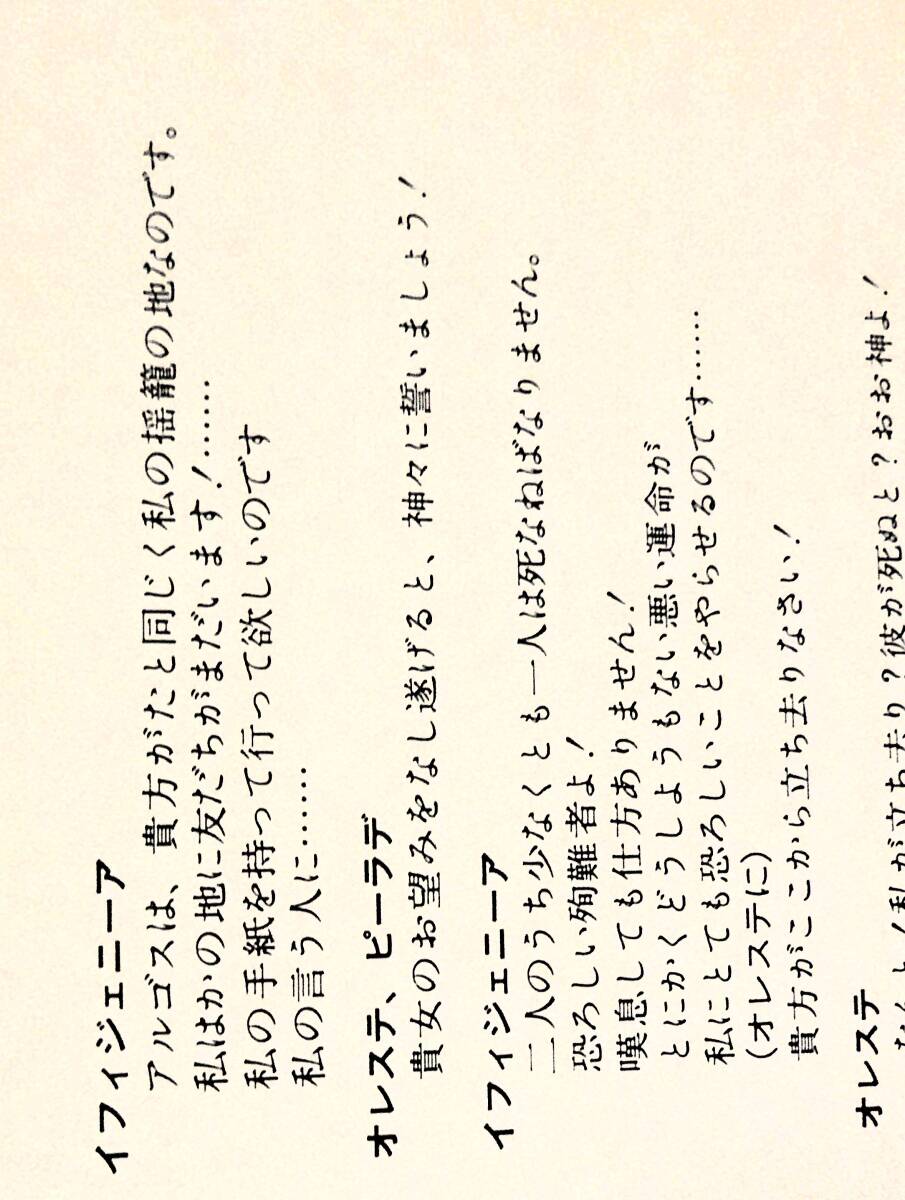 イフィジェニーア
アルゴスは、貴方がたと同じく私の揺籠の地なのです。
私はかの地に友だちがまだいます！……
私の手紙を持って行って欲しいのです
私の言う人に……
オレステ、ピーラデ
貴女のお望みをなし遂げると、神々に誓いましょう！
イフィジェニーア
二人のうち少なくとも一人は死なねばなりません。
恐ろしい殉難者よ！
嘆息しても仕方ありません！
とにかくどうしようもない悪い運命が
私にとても恐ろしいことをやらせるのです……
(オレステに)
貴方がここから立ち去りなさい！
オレステ
なんと！私が立ち去り？彼が死ぬと？おお神よ！